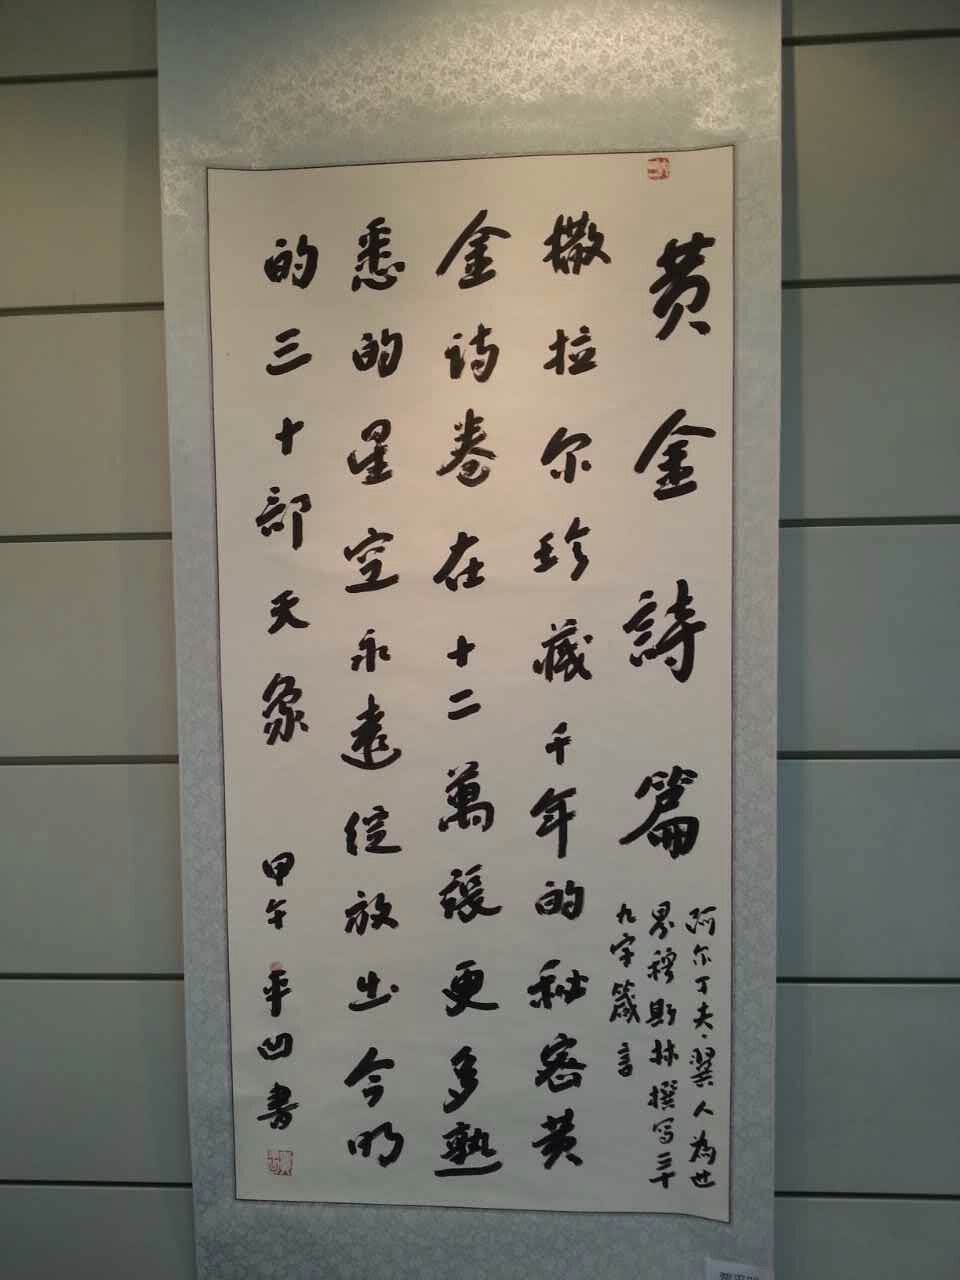 黄金詩篇
阿尔丁夫·翼人為世
界穆斯林撰写三十
九字箴言
撒拉尔珍藏千年的秘密黄
金诗卷在十二萬張更多熟
悉的星空永遠绽放出今明
的三十部天象
甲午平凹書